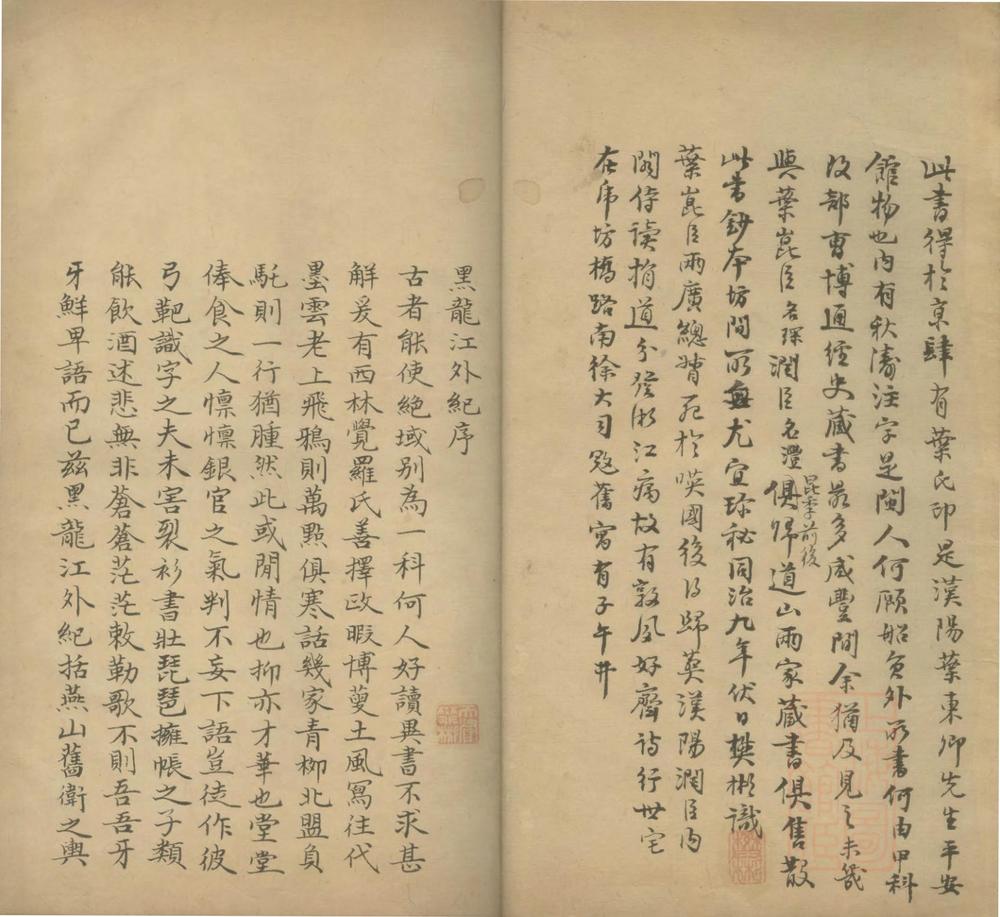 此書得於京肆有葉氏印是漢陽葉東卿先生平安
館物也內有秋濤注字是閩人何願船員外所書何由甲科
改部曹博通經史藏書最多咸豐間余猶及見之未幾
與葉崑臣名琛潤臣名灃昆季前後俱歸道山兩家藏書俱售散
此書鈔本坊間所無尤宜珍秘同治九年伏日樊彬識
葉崑臣兩廣總督死於暎國後得歸葬漢陽潤臣內
閣侍讀捐道分發浙江病故有敦夙好齋詩行世宅
在虎坊橋路南徐大司空舊寓有子午井
黑龍江外紀序
古者能使絕域別為一科何人好讀異書不求甚
解爰有西林覺羅氏善擇政暇博蒐土風寫往代
墨雲老上飛鴉則萬點俱寒話幾家青柳北盟負
馲則一行猶腫然此或閒情也抑亦才華也堂堂
俸食之人懍懍銀官之氣判不妄下語豈徒作彼
弓靶識字之夫未害裂衫書壯琵琶擁帳之子類
能飲酒述悲無非蒼蒼茫茫敕勒歌不則吾吾牙
牙鮮卑語而已茲黑龍江外紀括燕山舊衛之輿